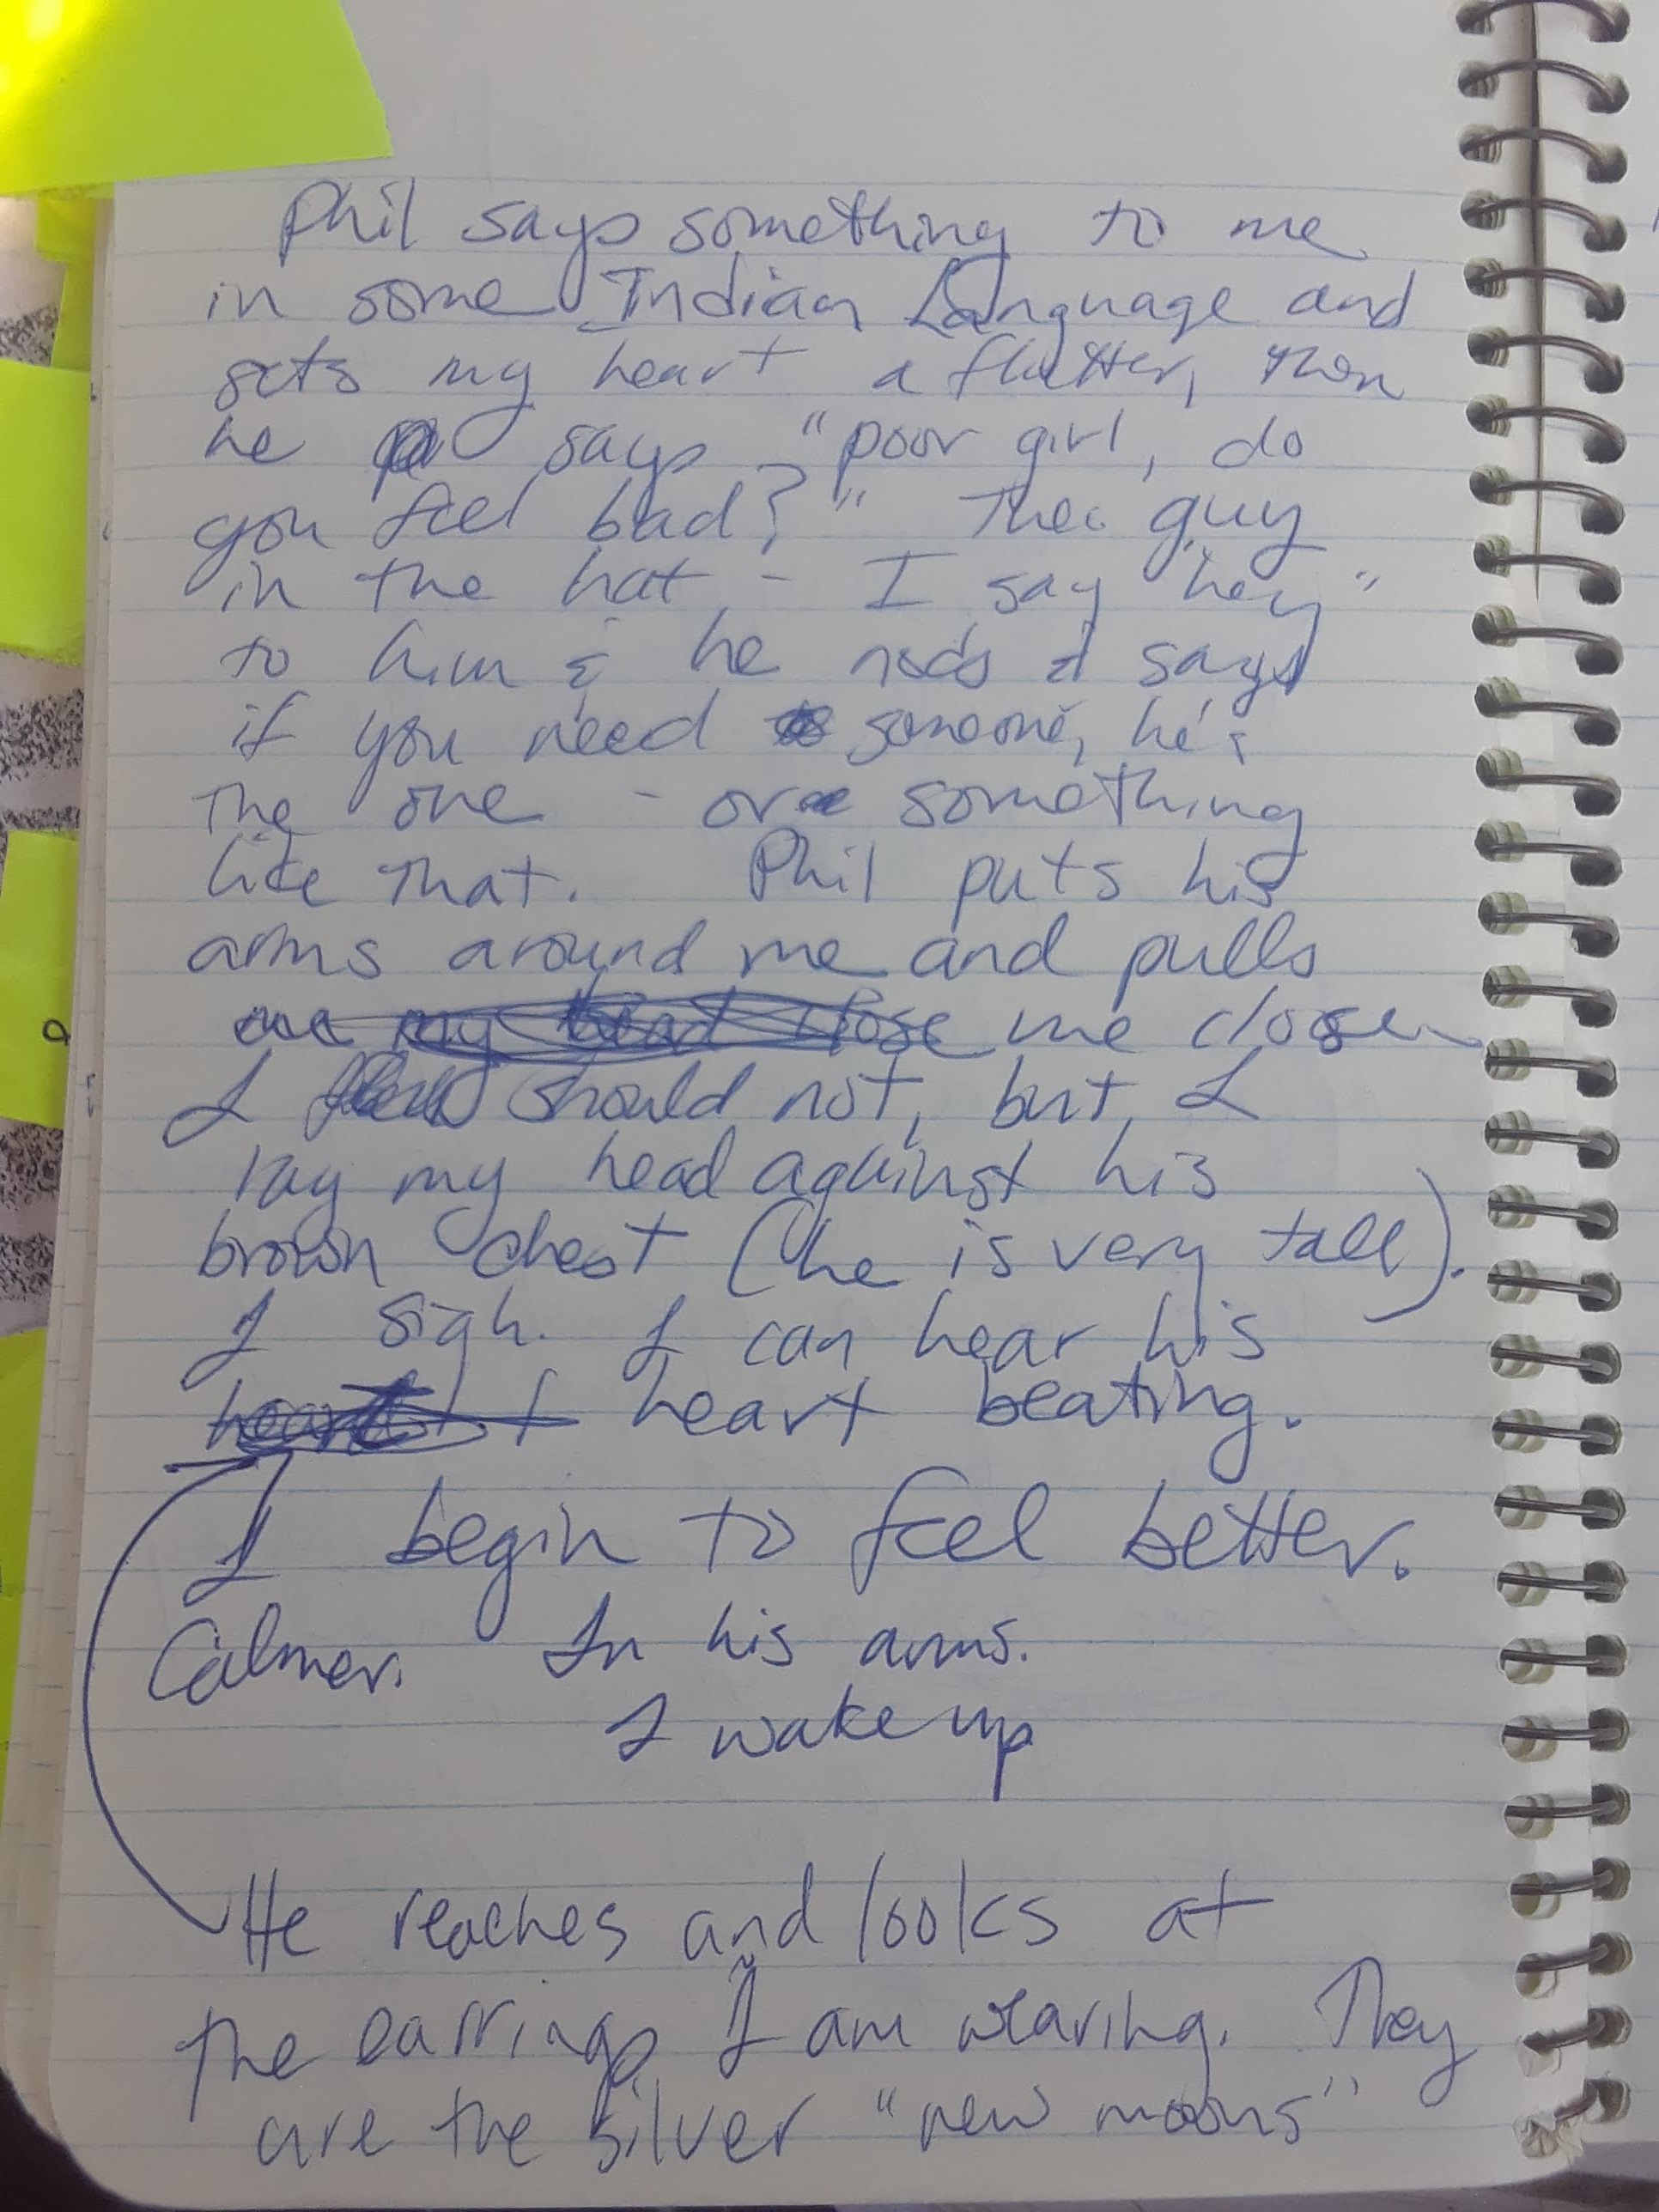 Phil says something to me
in some Indian Language and
sets my heart a flutter, then
he says "poor girl, do
you feel bad?" The guy
in the hat - I say "hey"
to him & he nods & says
if you need someone, he's
the one - or something
like that. Phil puts his
arms around me and pulls
me my head close me closer
I should not, but I
lay my head against his
brown chest (he is very tall).
I sigh. I can hear his
heart heart beating.
I begin to feel better.
Calmer. In his arms.
I wake up
He reaches and looks at
the earrings I am wearing. They
are the silver "new moons"